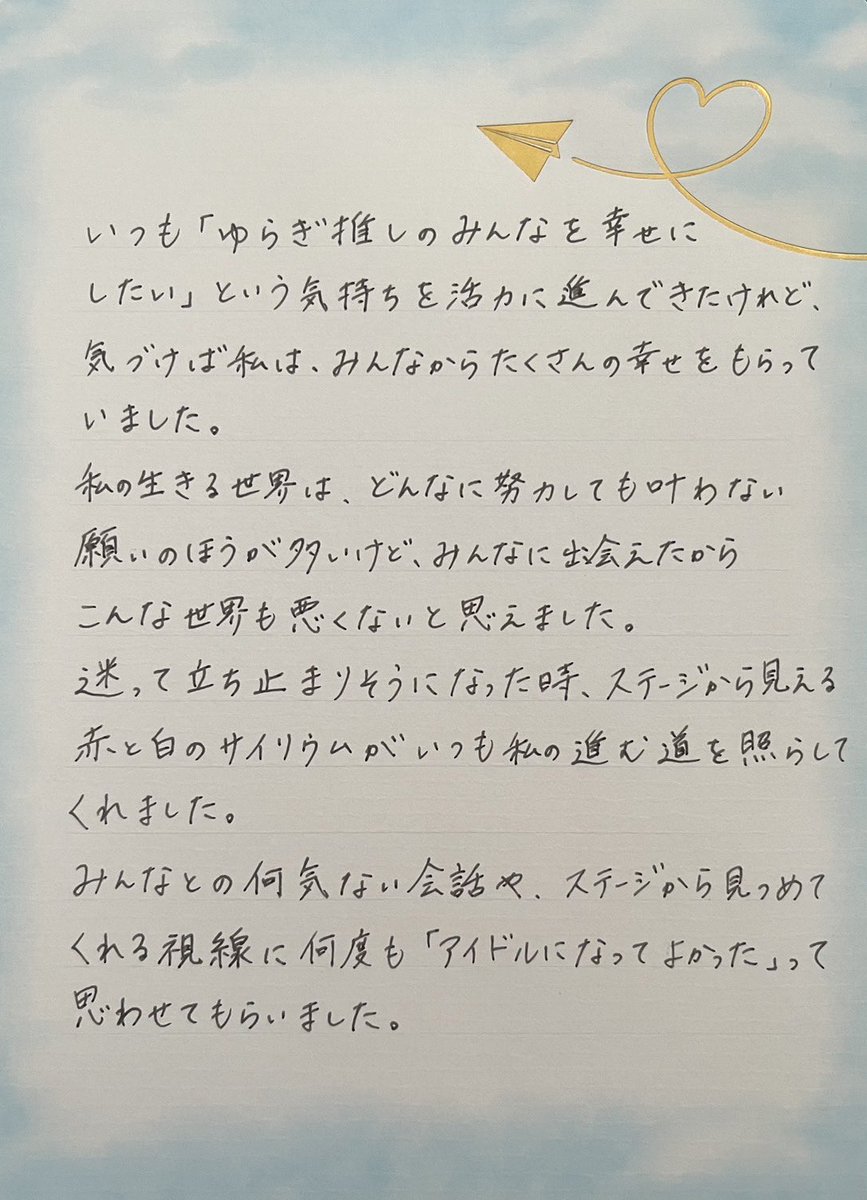 いつも「ゆらぎ推しのみんなを幸せに
したい」という気持ちを活力に進んできたけれど、
気づけば私は、みんなからたくさんの幸せをもらって
いました。
私の生きる世界は、どんなに努力しても叶わない
願いのほうが多いけど、みんなに出会えたから
こんな世界も悪くないと思えました。
迷って立ち止まりそうになった時、ステージから見える
赤と白のサイリウムがいつも私の進む道を照らして
くれました。
みんなとの何気ない会話や、ステージから見つめて
くれる視線に何度も「アイドルになってよかった」って
思わせてもらいました。